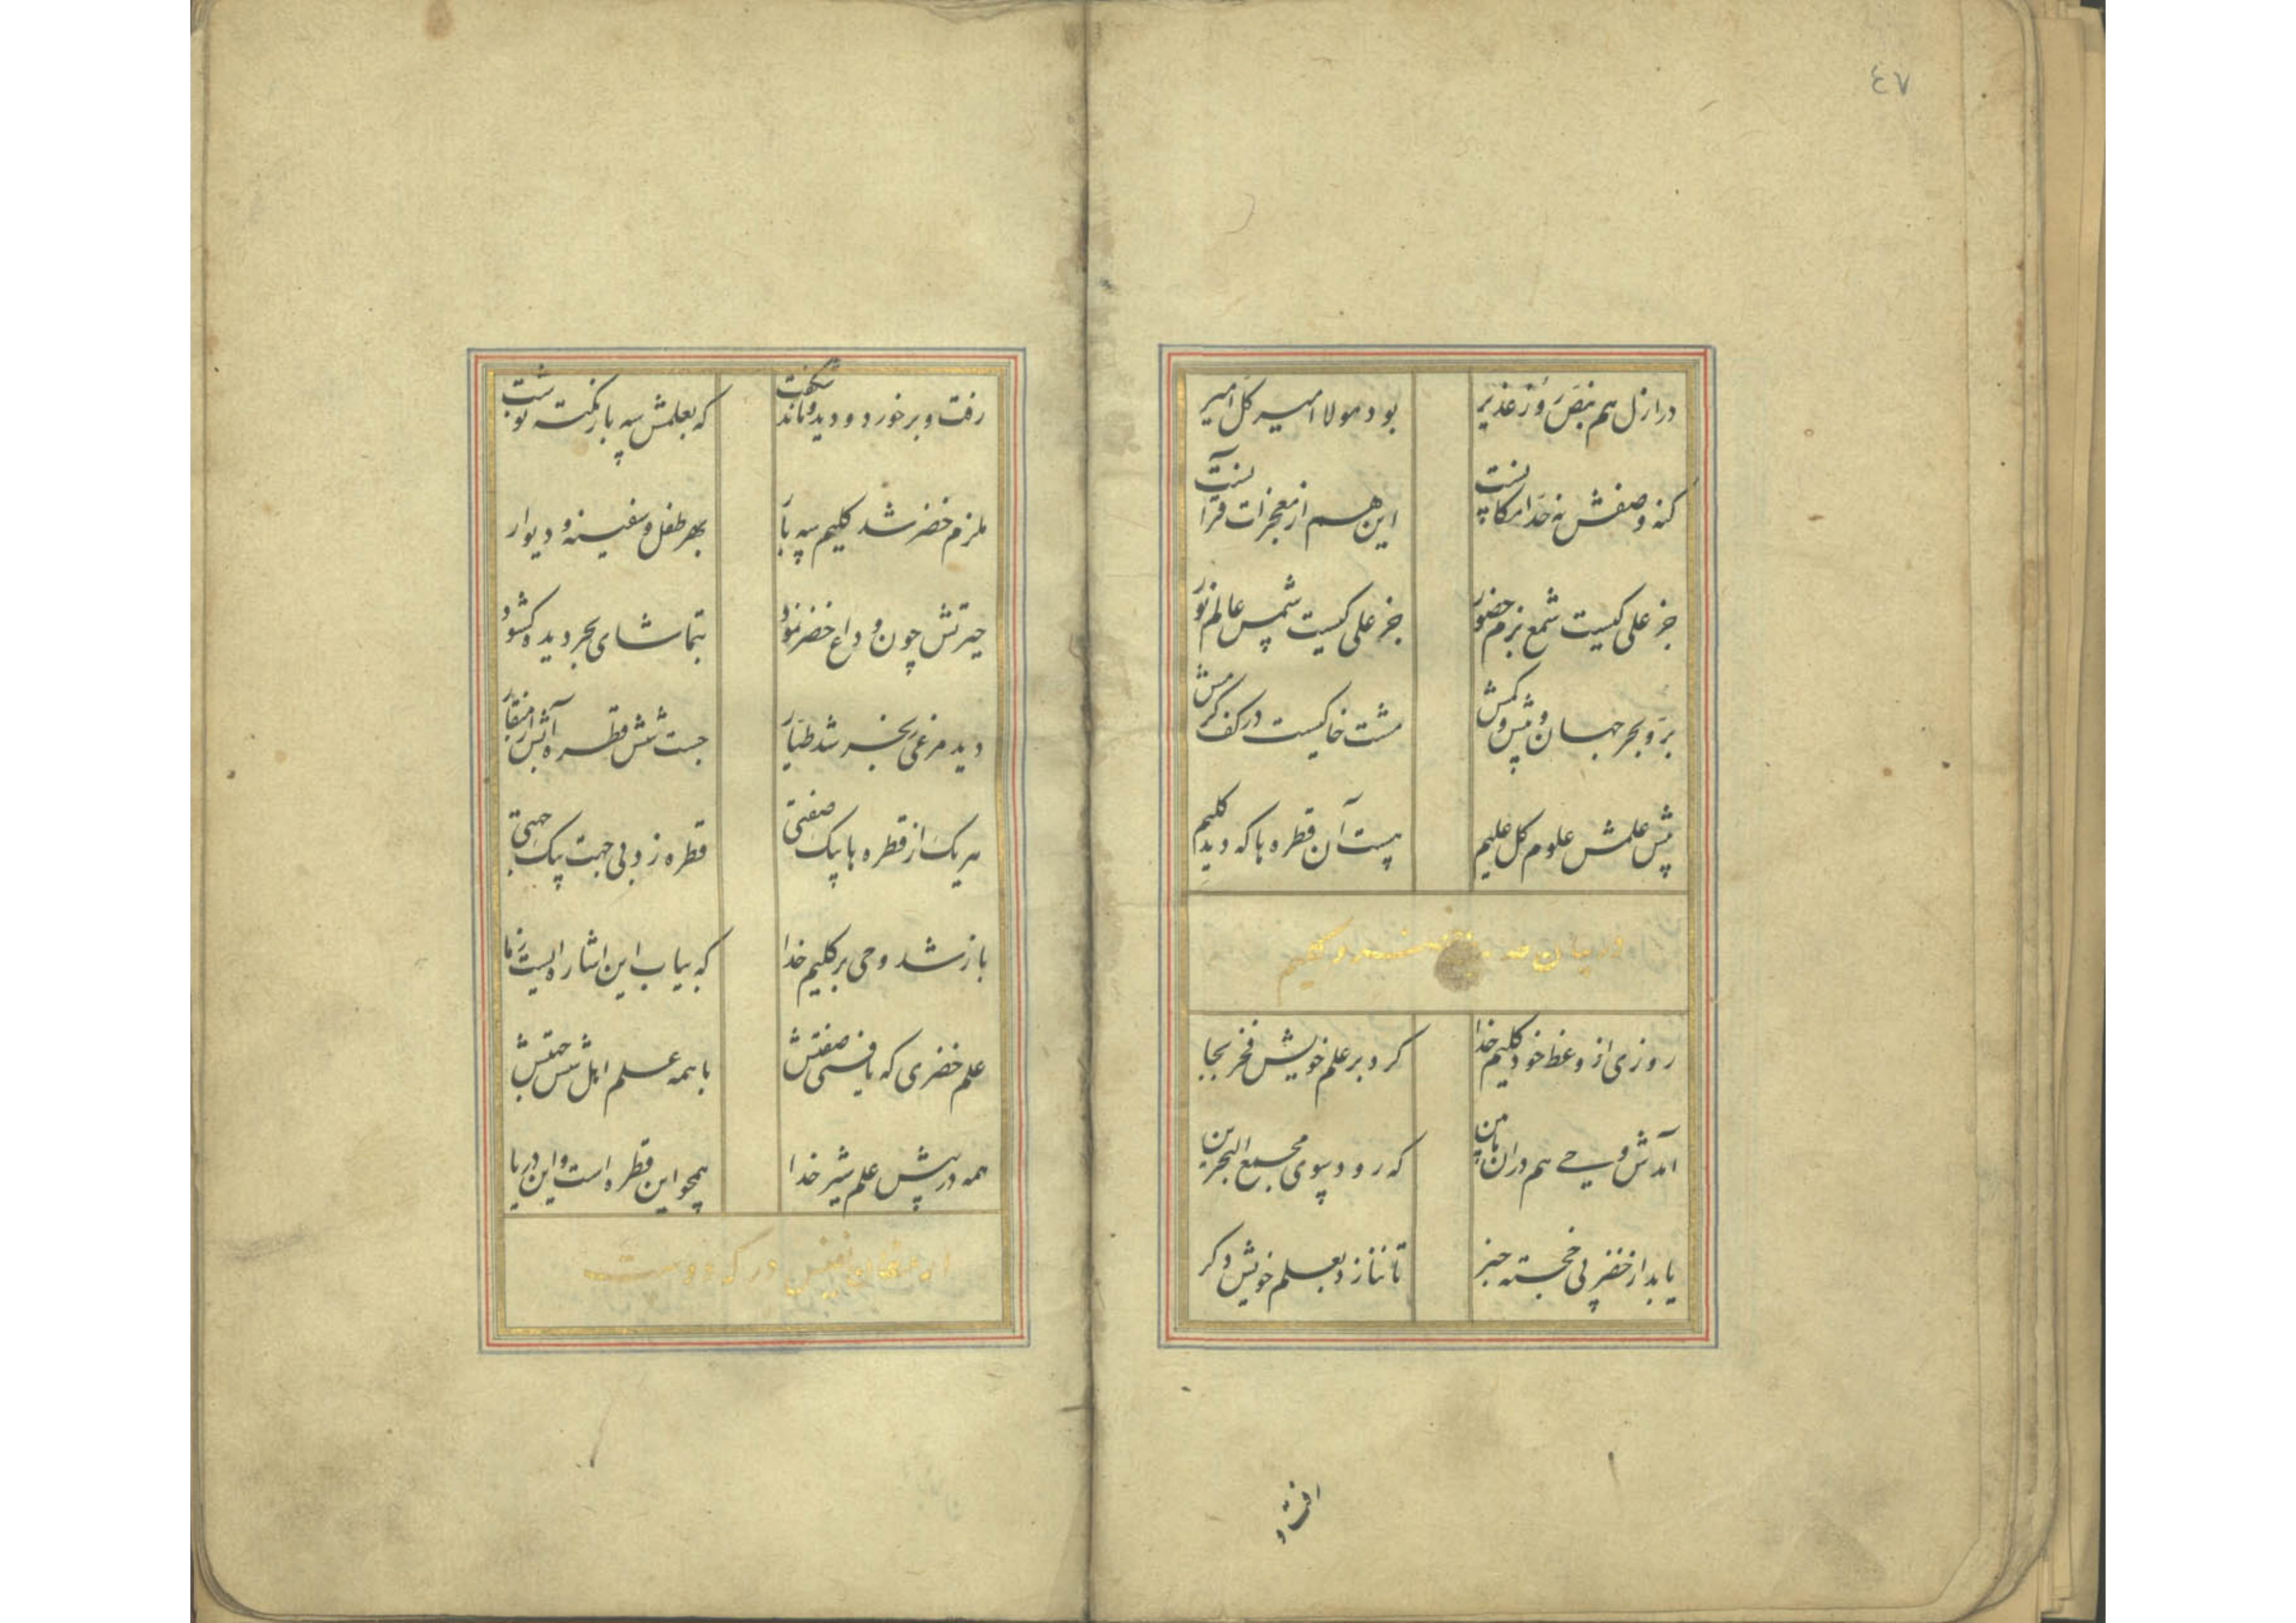 ٤٧
در ازل هم بنص روز غدیر بود مولا امیر کل امیر
کنه وصفش نه حد امکانست این هم از معجزات قرآنست
جز علی کیست شمع بزم حضور جز علی کیست شمس عالم نور
بر و بحر جهان و بیش و کمش مشت خاکیست در کف کرمش
پیش علمش علوم کل علیم هست آن قطره ها که دید کلیم
در بیان خضر و کلیم
روزی از وعظ خود کلیم خدا کرد بر علم خویش فخر بجا
آمدش وحی هم در آن مابین که رود سوی مجمع البحرین
یابد از خضر پی خجسته خبر تا ننازد بعلم خویش دکر
رفت و برخورد و دید و ماند شکفت که بعلمش سه بار نکته
ملزم خضر شد کلیم سه بار بهر طفل و سفینه و دیوار
حیرتش چون وداع خضر نمود بتماشای بحر دیده کشود
دید مرغی ببحر شد طیار جست شش قطره آبش از منقار
هر یک از قطره ها بیک صفتی قطره زد بی جهت بیک جهتی
باز شد وحی بر کلیم خدا که بیاب این اشاره ایست ز ما
علم خضری که یافتی صفتش با همه علم اهل شش جهتش
همه در پیش علم شیر خدا همچو این قطره است و این دریا
در دوست